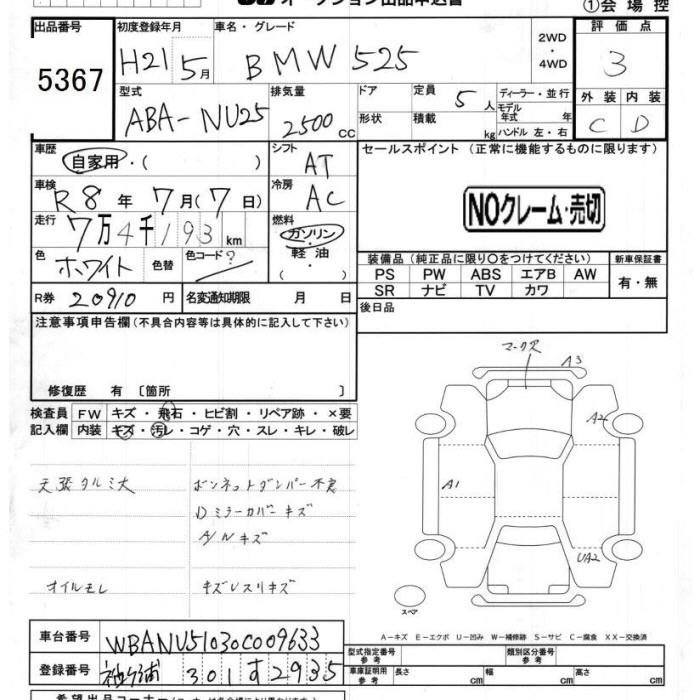 オークション出品申込書 ①会場控
出品番号 初度登録年月 車名・グレード 評価点
5367 H21 5月 BMW 525 2WD・4WD 3
型式 排気量 ドア 定員 ディーラー・並行 外装 内装
ABA-NU25 2500cc 5人 モデル年式 年 C D
形状 積載 kg ハンドル 左・右
車歴 シフト セールスポイント (正常に機能するものに限ります)
自家用・( ) AT
車検 冷房
R8年7月(7日) AC NOクレーム・売切
走行 燃料
7万4千193km ガソリン
色 色替 色コード 軽油 装備品 (純正品に限り○をつけてください) 新車保証書
ホワイト ? ・( ) PS PW ABS エアB AW 有・無
SR ナビ TV カワ
R券 20910円 名変通知期限 月 日 後日品
注意事項申告欄 (不具合内容等は具体的に記入して下さい)
マークズ
A3
修復歴 有 〔箇所 〕
検査員 FW キズ・飛石・ヒビ割・リペア跡・×要
記入欄 内装 キズ・汚レ・コゲ・穴・スレ・キレ・破レ
A2
天張タルミ大 ボンネットダンパー不良 A1
Dミラーカバーキズ
A/Wキズ
UA2
オイルモレ キズレスリキズ
スペア
A-キズ E-エクボ U-凹み W-補修跡 S-サビ C-腐食 XX-交換済
車台番号 WBANU51030C009633 型式指定番号 参考 類別区分番号 参考
登録番号 袖ヶ浦 301 す 2935 車庫証明用 参考 長さ cm 幅 cm 高さ cm
希望出品コーナー